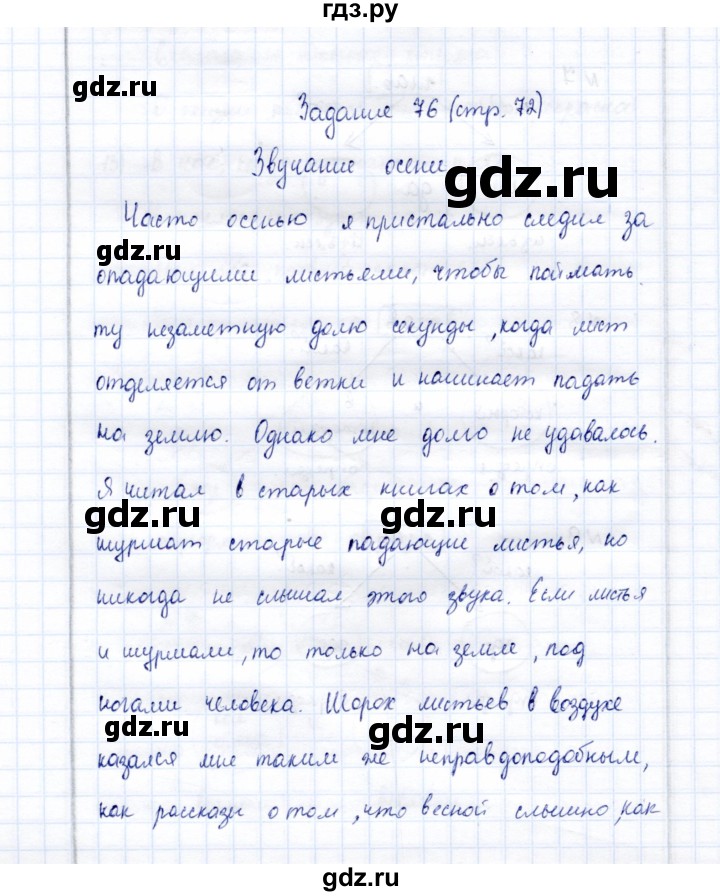 гдз.ру
gdz.ru
Задание 76 (стр. 72)
Звучание осени
gdz.ru
Часто осенью я пристально следил за
gdz.ru
опадающими листьями, чтобы поймать
ту незаметную долю секунды, когда лист
отделяется от ветки и начинает падать
на землю. Однако мне долго не удавалось.
Я читал в старых книгах о том, как
gdz.ru gdz.ru
шуршат старые падающие листья, но
никогда не слышал этого звука. Если листья
и шуршали, то только на земле, под
ногами человека. Шорох листьев в воздухе
gdz.ru gdz.ru
казался мне таким же неправдоподобным,
как рассказы о том, что весной слышно, как